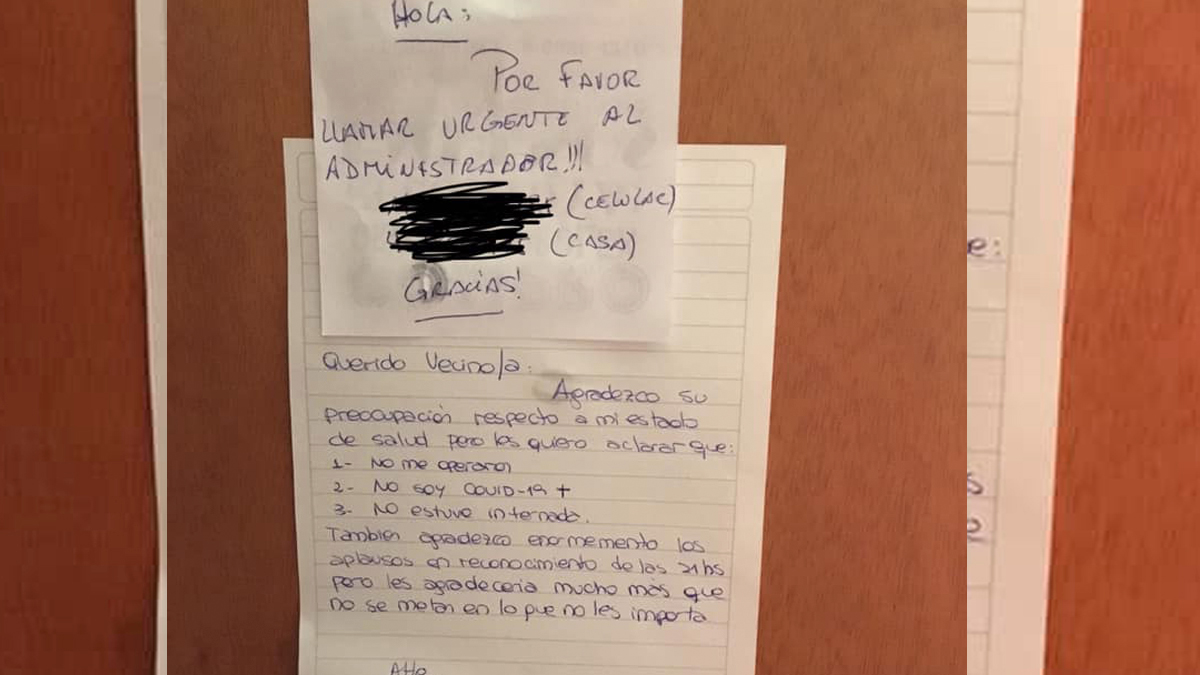 HOLA:
POR FAVOR
LLAMAR URGENTE AL
ADMINISTRADOR!!!
(CELULAR)
(CASA)
GRACIAS!
Querido Vecino/a:
Agradezco su
preocupación respecto a mi estado
de salud pero les quiero aclarar que:
1- No me operaron
2- No soy COVID-19 +
3- No estuve internada.
También agradezco enormemento los
aplausos en reconocimiento de las 21hs
pero les agradecería mucho más que
no se metan en lo que no les importa
Atte
e:
s
e